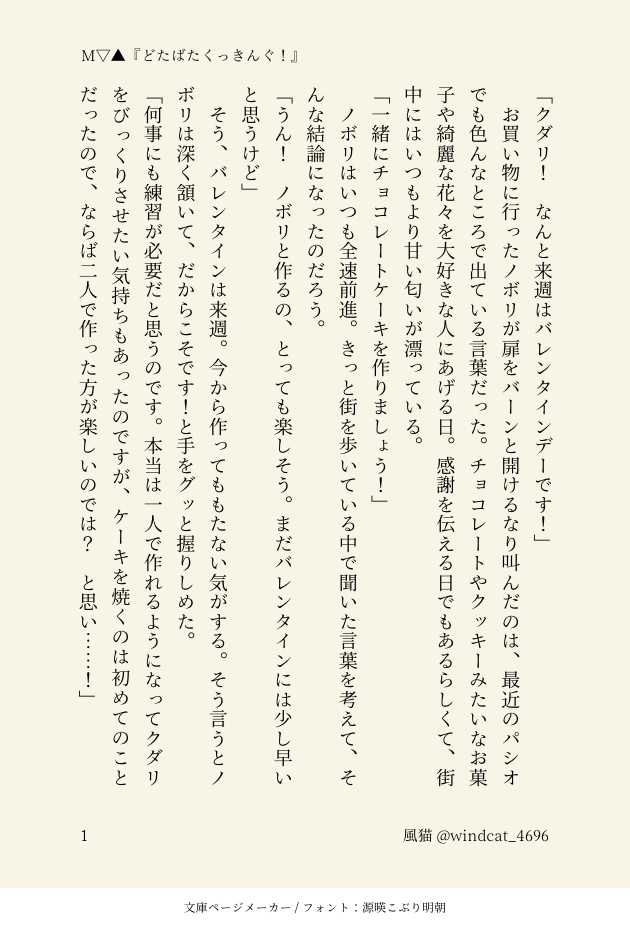 M▽▲『どたばたくっきんぐ！』
「クダリ！　なんと来週はバレンタインデーです！」
　お買い物に行ったノボリが扉をバーンと開けるなり叫んだのは、最近のパシオ
でも色んなところで出ている言葉だった。チョコレートやクッキーみたいなお菓
子や綺麗な花々を大好きな人にあげる日。感謝を伝える日でもあるらしくて、街
中にはいつもより甘い匂いが漂っている。
「一緒にチョコレートケーキを作りましょう！」
　ノボリはいつも全速前進。きっと街を歩いている中で聞いた言葉を考えて、そ
んな結論になったのだろう。
「うん！　ノボリと作るの、とっても楽しそう。まだバレンタインには少し早い
と思うけど」
　そう、バレンタインは来週。今から作ってももたない気がする。そう言うとノ
ボリは深く頷いて、だからこそです！と手をグッと握りしめた。
「何事にも練習が必要だと思うのです。本当は一人で作れるようになってクダリ
をびっくりさせたい気持ちもあったのですが、ケーキを焼くのは初めてのこと
だったので、ならば二人で作った方が楽しいのでは？　と思い……！」
1
風猫 @windcat_4696
文庫ページメーカー / フォント：源暎こぶり明朝